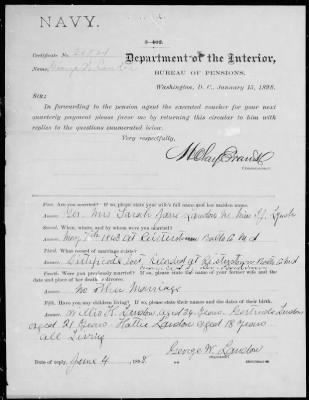 NAVY.
3-402.
Certificate No.
Name, George W. Landon
Department of the Interior,
BUREAU OF PENSIONS.
Washington, D. C., January 15, 1898.
SIR:
In forwarding to the pension agent the executed voucher for your next
quarterly payment please favor me by returning this circular to him with
replies to the questions enumerated below.
Very respectfully,
H Clay Evans
COMMISSIONER.
First. Are you married? If so, please state your wife's full name and her maiden name.
Answer. Yes. Mrs Sarah Jane Landon
Second. When, where, and by whom were you married?
Answer. May at Reisterstown Balto Co Md
Third. What record of marriage exists?
Answer. Certificate lost Recorded at Reisterstown
Fourth. Were you previously married? If so, please state the name of your former wife and the
date and place of her death or divorce.
Answer. No other Marriage
Fifth. Have you any children living? If so, please state their names and the dates of their birth.
Answer. Willie H. Landon aged 24 Years. Gertrude Landon
aged 21 Years Hattie Landon aged 18 Years
All Living
George W. Landon
Date of reply, June 4, 1898.